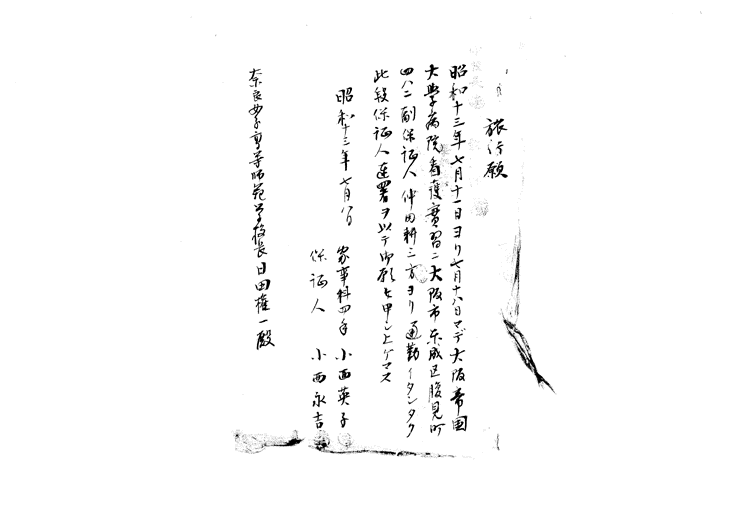 旅行願
昭和十三年七月十一日ヨリ七月十八日マデ大阪帝国
大学病院看護實習ニ大阪市東成区腹見町
四八二副保証人仲田耕三方ヨリ通勤イタシタク
此段保証人連署ヲ以テ御願ヒ申シ上ゲマス
昭和十三年七月八日
家事科四年 小西英子
保証人 小西永吉
奈良女子高等師範学校長日田権一殿